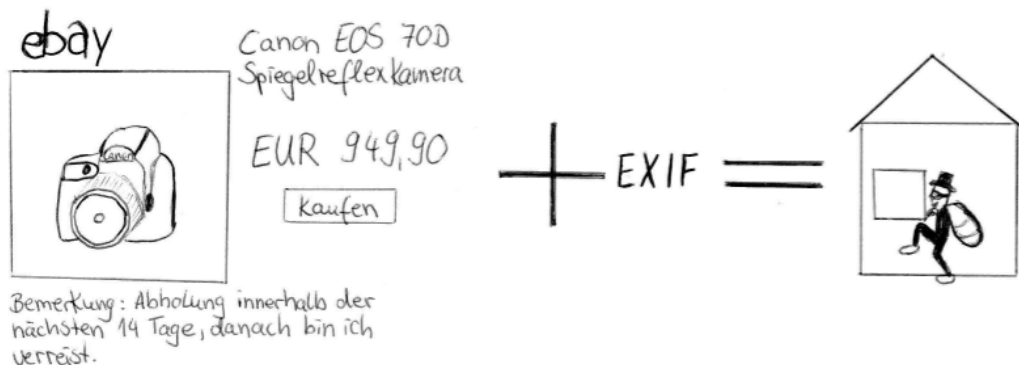 ebay
Canon EOS 70D
Spiegelreflexkamera
Canon
EUR 949,90
kaufen
EXIF
Bemerkung: Abholung innerhalb der
nächsten 14 Tage, danach bin ich
verreist.